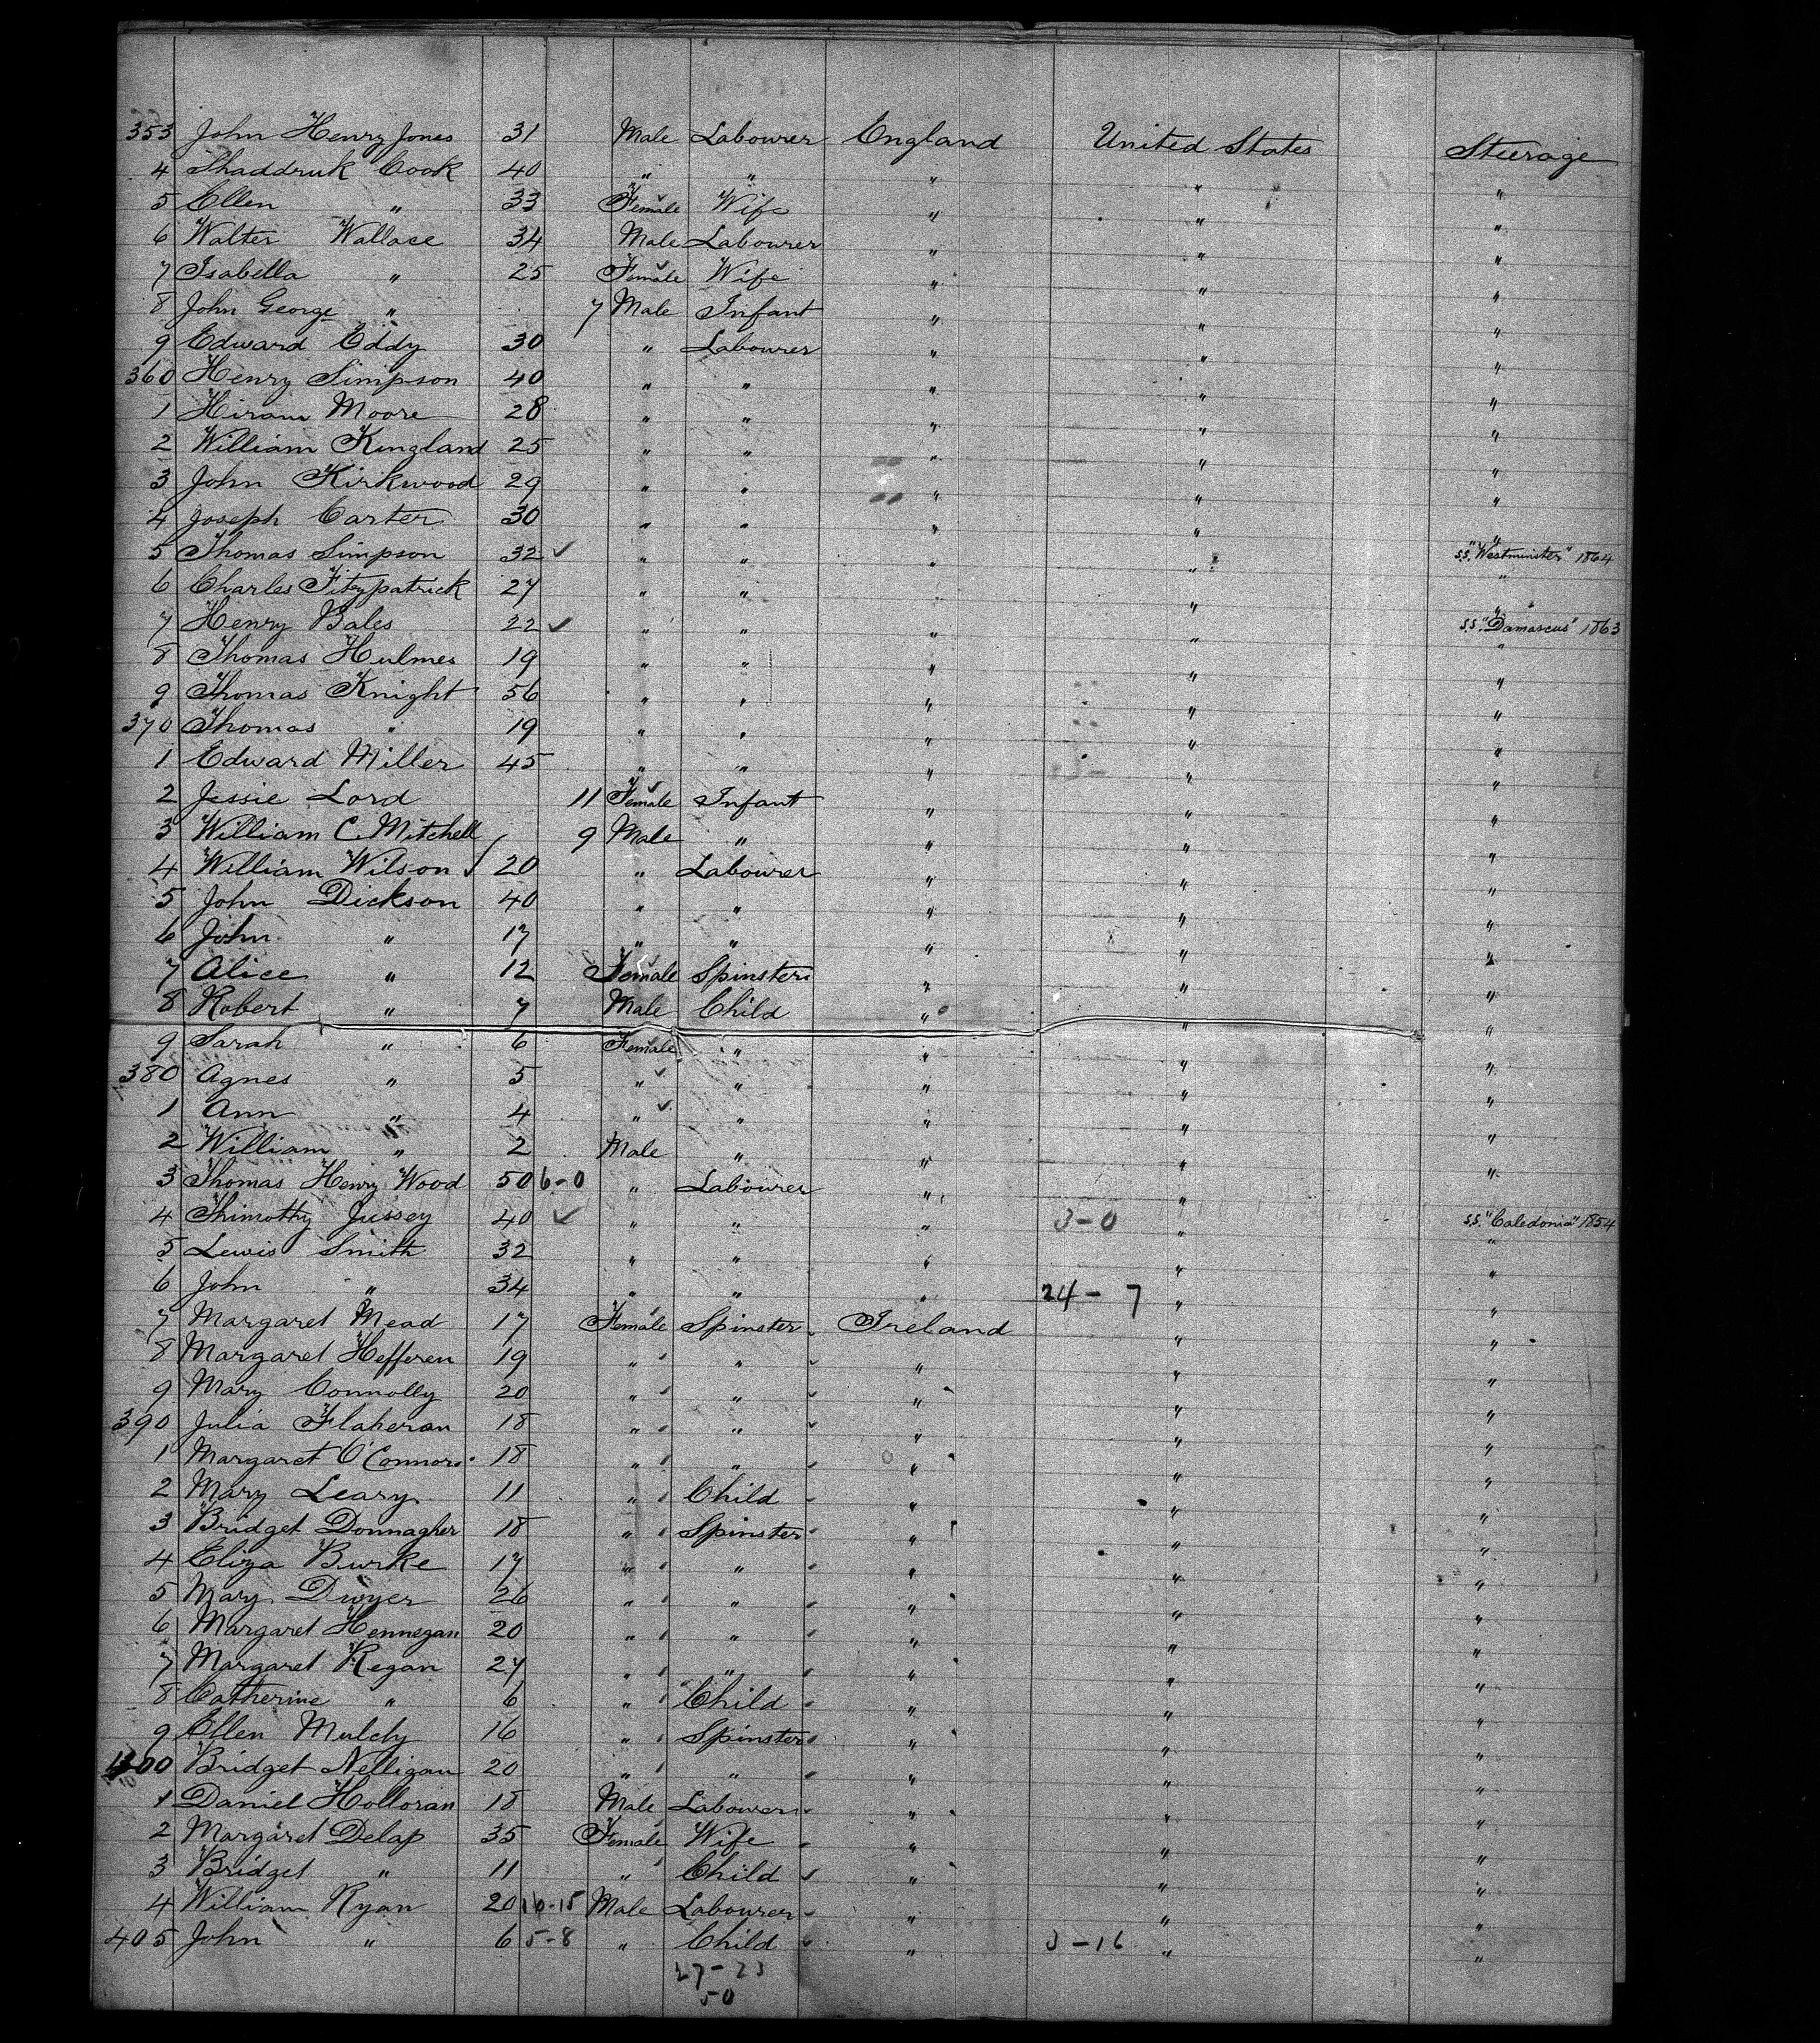 353 John Henry Jones 31 Male Labourer England United States Steerage
4 Shaddruk Cook 40 " " " " "
5 Ellen " 33 Female Wife " " "
6 Walter Wallace 34 Male Labourer " " "
7 Isabella " 25 Female Wife " " "
8 John George " 7 Male Infant " " "
9 Edward Eddy 30 " Labourer " " "
360 Henry Simpson 40 " " " " "
1 Hiram Moore 28 " " " " "
2 William Kingland 25 " " " " "
3 John Kirkwood 29 " " " " "
4 Joseph Carter 30 " " " " "
5 Thomas Simpson 32 ✓ " " " " S.S. "Westminster" 1864
6 Charles Fitzpatrick 27 " " " " "
7 Henry Bales 22 ✓ " " " " S.S. "Damascus" 1863
8 Thomas Hulmes 19 " " " " "
9 Thomas Knight 56 " " " " "
370 Thomas " 19 " " " " "
1 Edward Miller 45 " " " " "
2 Jessie Lord 11 Female Infant " " "
3 William C. Mitchell 9 Male " " " "
4 William Wilson 20 " Labourer " " "
5 John Dickson 40 " " " " "
6 John " 17 " " " " "
7 Alice " 12 Female Spinster " " "
8 Robert " 7 Male Child " " "
9 Sarah " 6 Female " " " "
380 Agnes " 5 " " " " "
1 Ann " 4 " " " " "
2 William " 2 Male " " " "
3 Thomas Henry Wood 50 6-0 " Labourer " " "
4 Thimothy Jussey 40 ✓ " " " 3-0 " S.S. "Caledonia" 1854
5 Lewis Smith 32 " " " " "
6 John " 34 " " " 24-7 " "
7 Margaret Mead 17 Female Spinster Ireland " "
8 Margaret Hefferen 19 " " " " "
9 Mary Connolly 20 " " " " "
390 Julia Flaheran 18 " " " " "
1 Margaret O'Connors 18 " " " " "
2 Mary Leary 11 " Child " " "
3 Bridget Donnagher 18 " Spinster " " "
4 Eliza Burke 17 " " " " "
5 Mary Dwyer 26 " " " " "
6 Margaret Hennegan 20 " " " " "
7 Margaret Regan 27 " " " " "
8 Catherine " 6 " Child " " "
9 Ellen Mulchy 16 " Spinster " " "
400 Bridget Nelligan 20 " " " " "
1 Daniel Holloran 18 Male Labourer " " "
2 Margaret Delap 35 Female Wife " " "
3 Bridget " 11 " Child " " "
4 William Ryan 20 16-15 Male Labourer " " "
405 John " 6 5-8 " Child " 3-16 " "
27-23
50